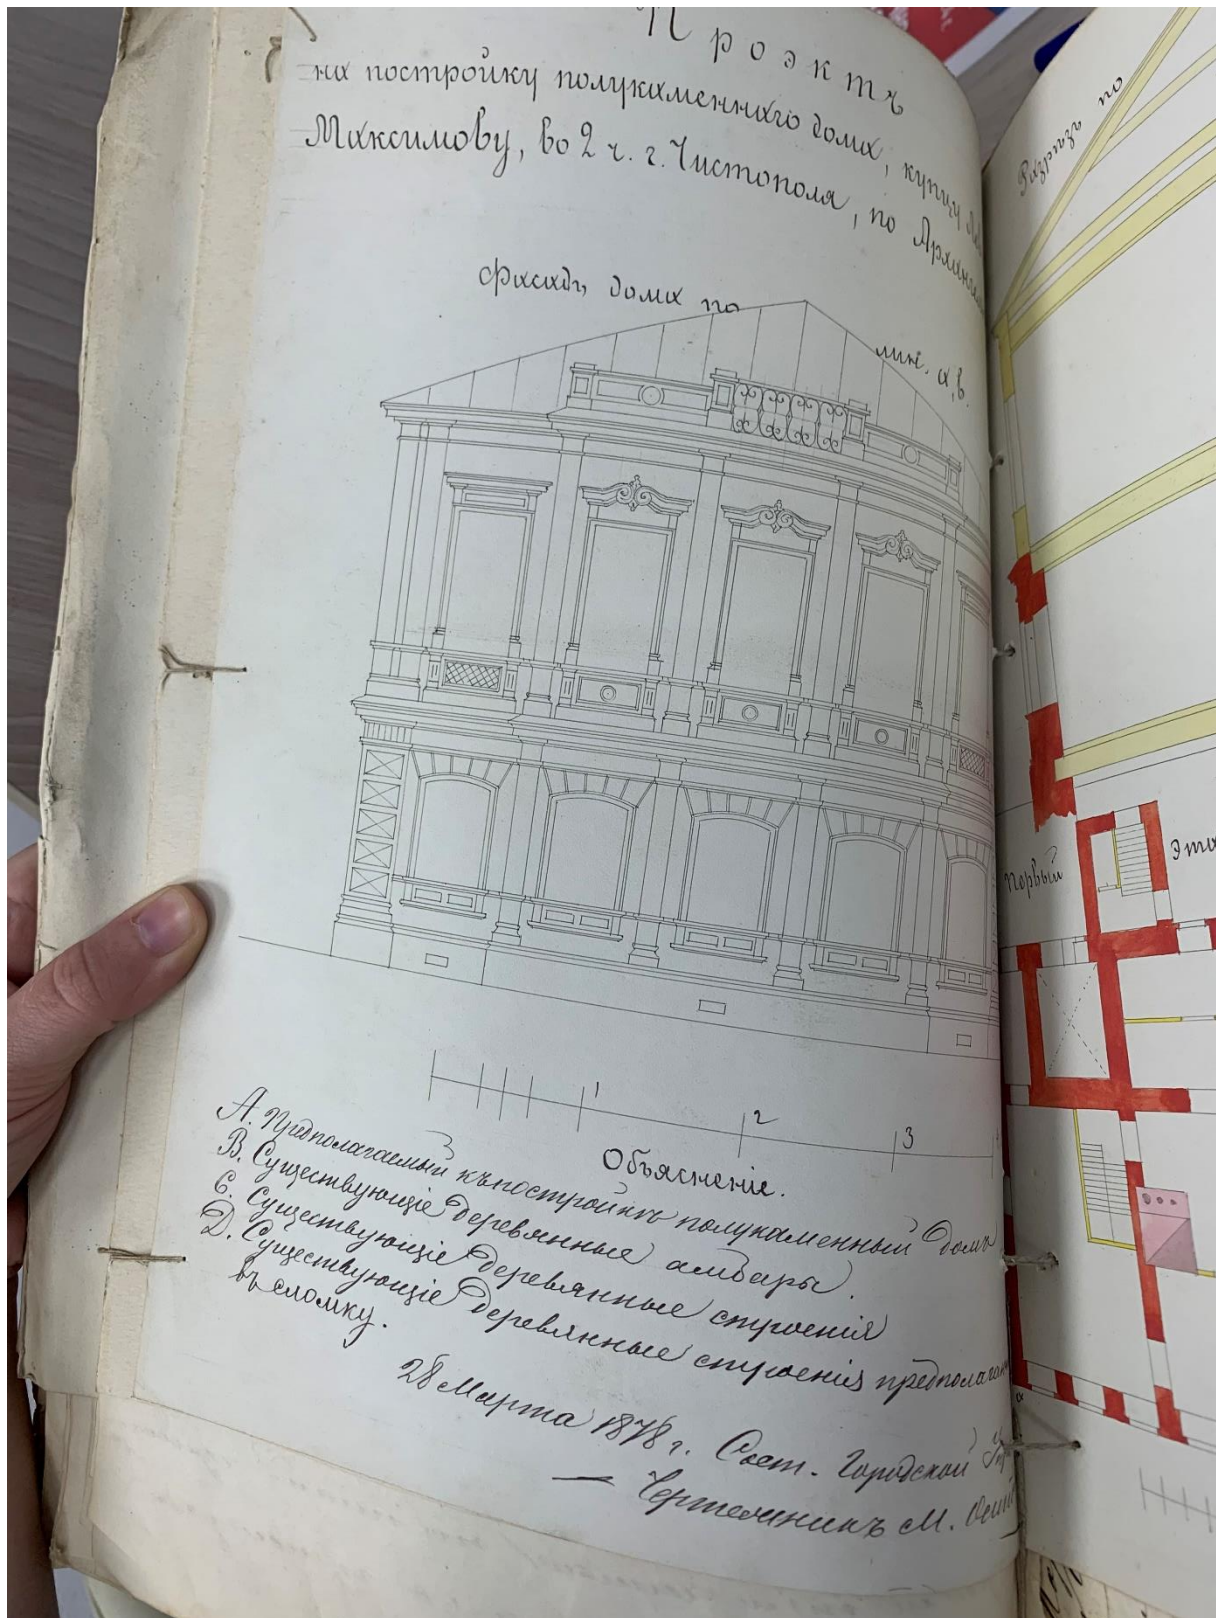 Проэктъ
на постройку полукаменнаго дома, купцу
Максимову, во 2 ч. г. Чистополя, по
Фасадъ дома по лин. а, в.
1 2 3
Объясненіе.
А. Предполагаемый къ постройкѣ полукаменный домъ
В. Существующіе деревянные амбары.
С. Существующіе деревянные строенія
D. Существующіе деревянные строенія
въ сломку.
28 Марта 1878 г. Сост. Городской
Чертежникъ М.
Разрѣзъ по
Первый